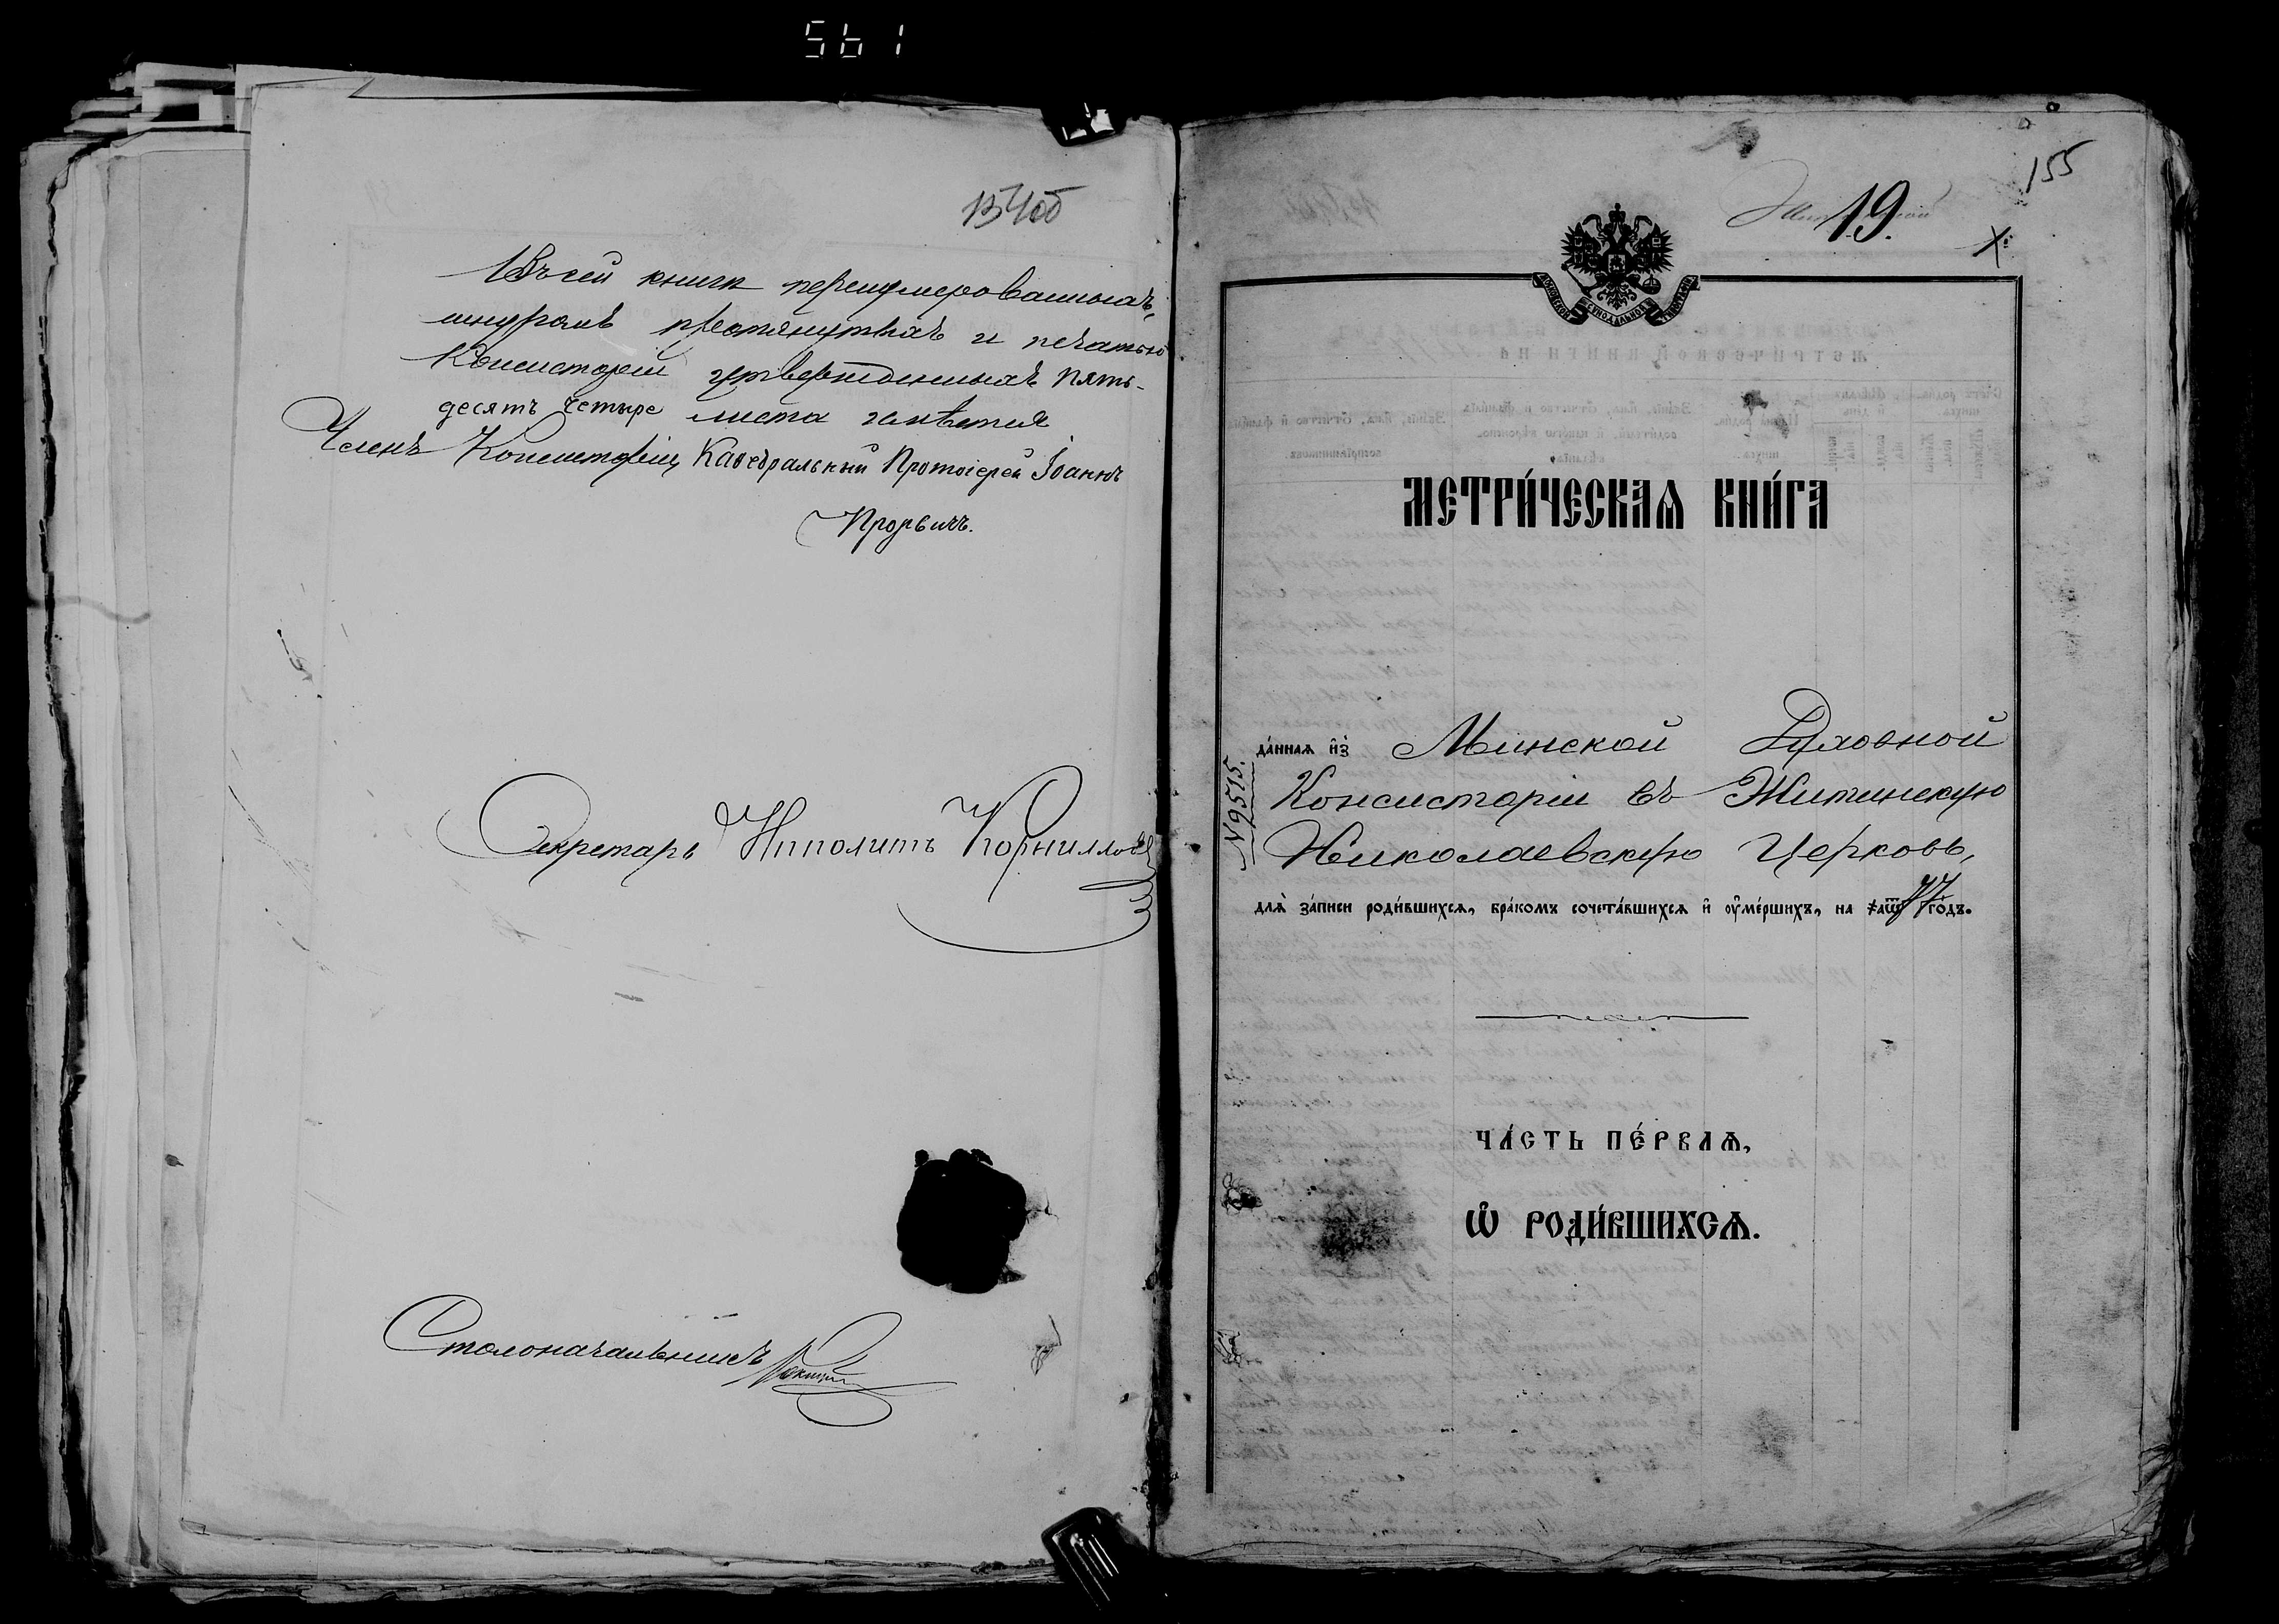 561
154об
Въ сей книги перенумерованныхъ,
шнуромъ протянутыхъ и печатью
Консисторіи утвержденныхъ пять-
десятъ четыре листа имѣется
Членъ Консисторіи, Каѳедральный Протоіерей Іоаннъ
Прорвичъ.
Секретарь Ипполитъ Корнилловъ
Столоначальникъ
155
19.
МОСКОВСКОЙ СѴНОДАЛЬНОЙ ТИПОГРАФІИ
МЕТРИ́ЧЕСКАѦ КНИ́ГА
да́нная и҆з̾ Минской Духовной
Консисторіи въ Житинскую
Николаевскую Церковь,
№9515.
для̀ за́писи роди́вшихся, бра́комъ сочета́вшихся и҆ ᲂу҆ме́ршихъ, на ҂аѿ го́дъ.
ЧА́СТЬ ПЕ́РВАѦ,
Ѽ РОДИ́ВШИХСѦ.